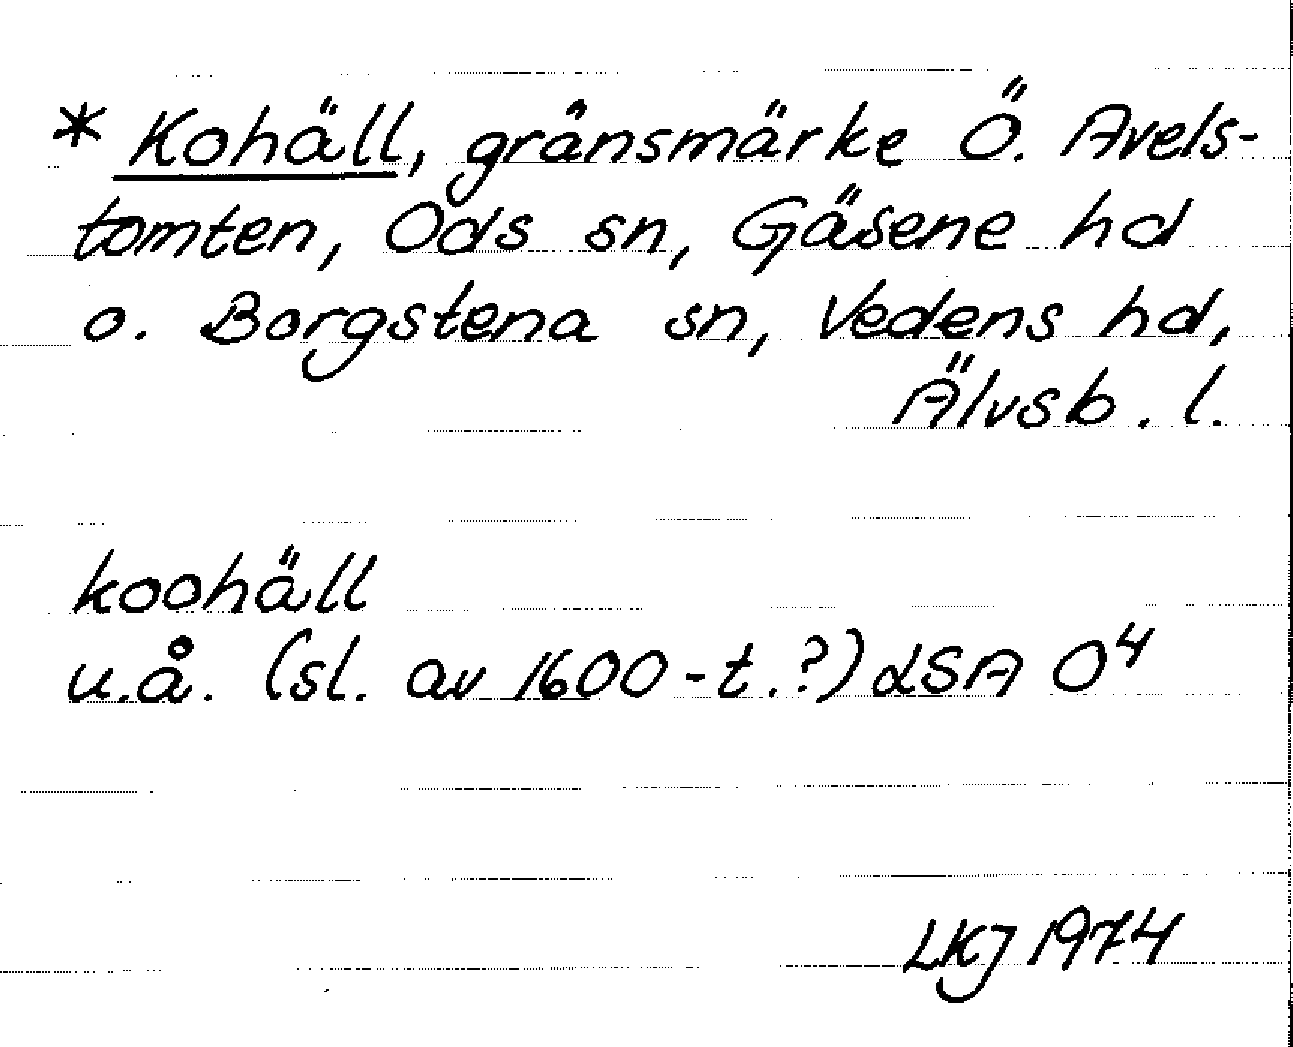 * Kohäll, gränsmärke Ö. Avels-
tomten, Ods sn, Gäsene hd
o. Borgstena sn, Vedens hd,
Älvsb. l.
koohäll
u.å. (sl. av 1600-t.?) LSA O⁴
LKJ 1974